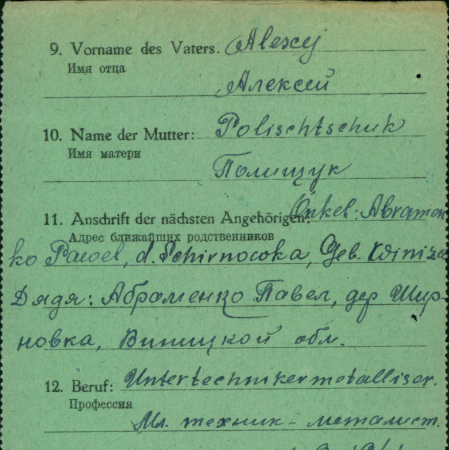 9. Vorname des Vaters. Alexej
Имя отца
Алексей
10. Name der Mutter: Polischtschuk
Имя матери
Полищук
11. Anschrift der nächsten Angehörigen: Onkel: Abramen
Адрес ближайших родственников
ko Pawel, d. Schirnowka, Geb. Winiza
Дядя: Абраменко Павел, дер Шир-
новка, Виницкой обл.
12. Beruf: Untertechnikermetalliser.
Профессия
Мл. техник - металист.